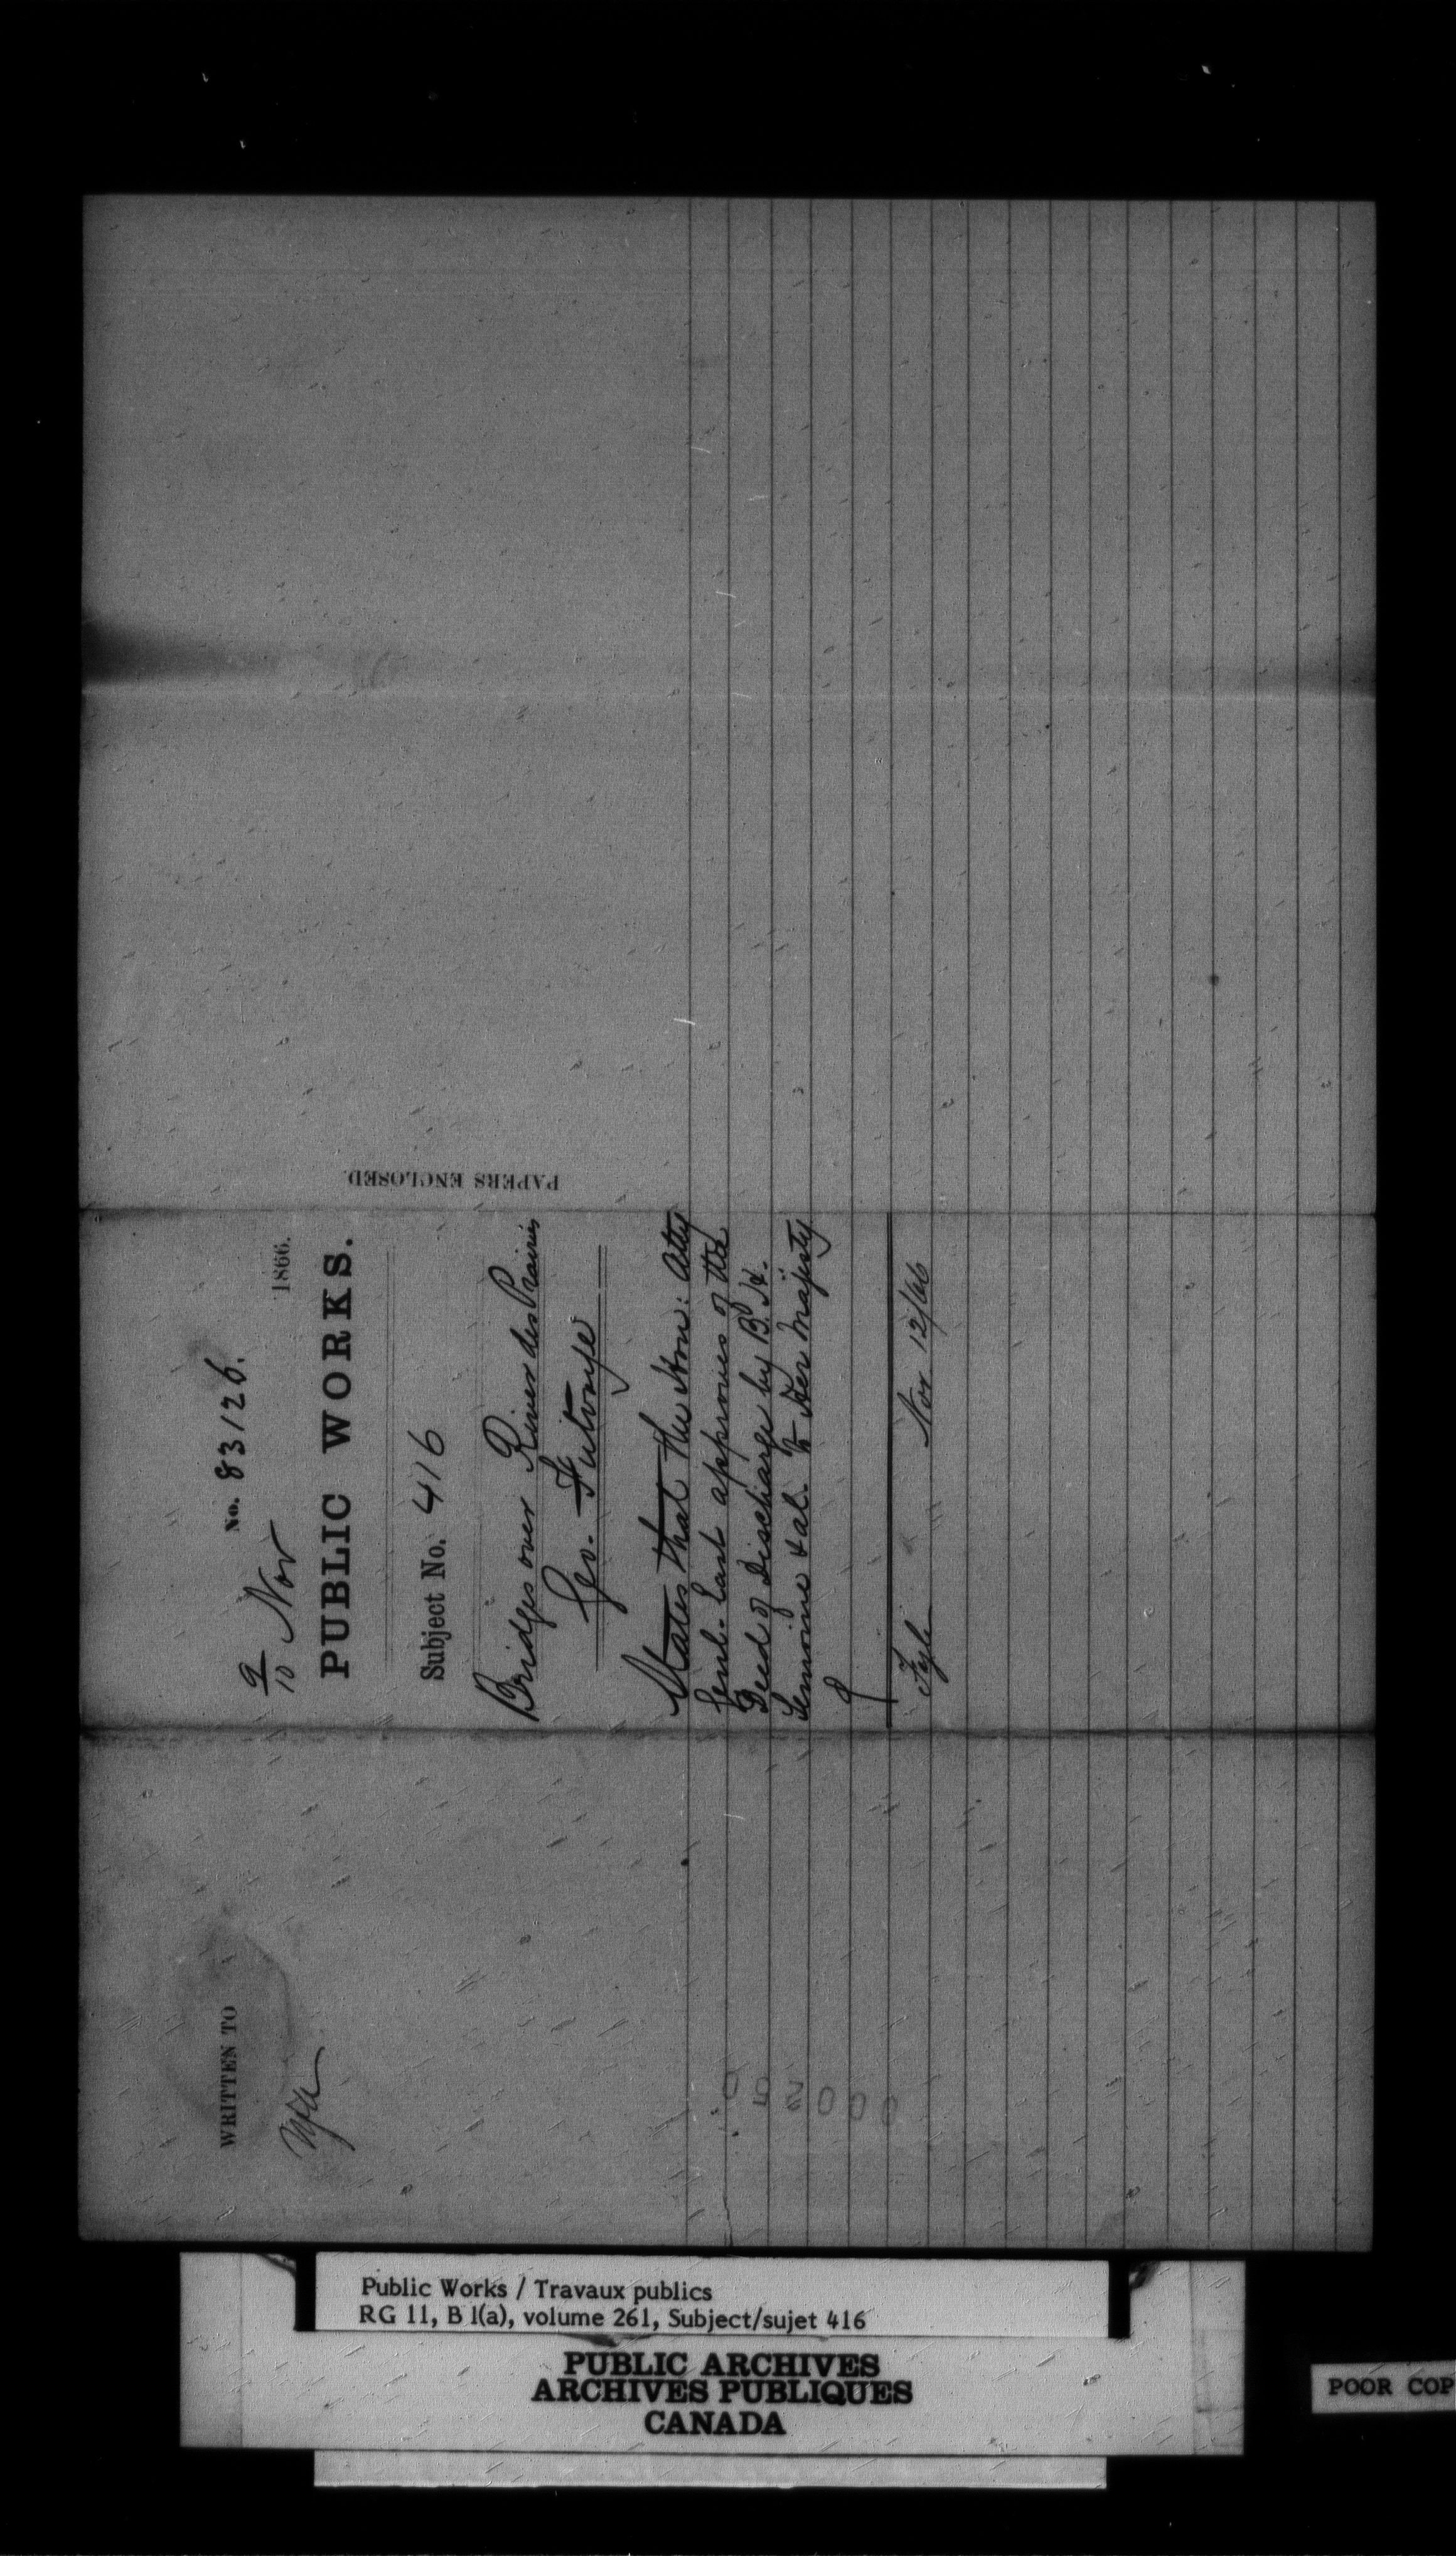 No. 83126.
9/10 Nov 1866.
PUBLIC WORKS.
Subject No. 416
Bridges over River des Prairies
Geo. Futvoye
States that the Hon: Atty
Genl. East approves of the
Deed of Discharge by B. H.
Lemoine & al. to Her Majesty
Fyle Nov 12/66
PAPERS ENCLOSED.
WRITTEN TO
000250
Public Works / Travaux publics
RG 11, B 1(a), volume 261, Subject/sujet 416
PUBLIC ARCHIVES
ARCHIVES PUBLIQUES
CANADA
POOR COP